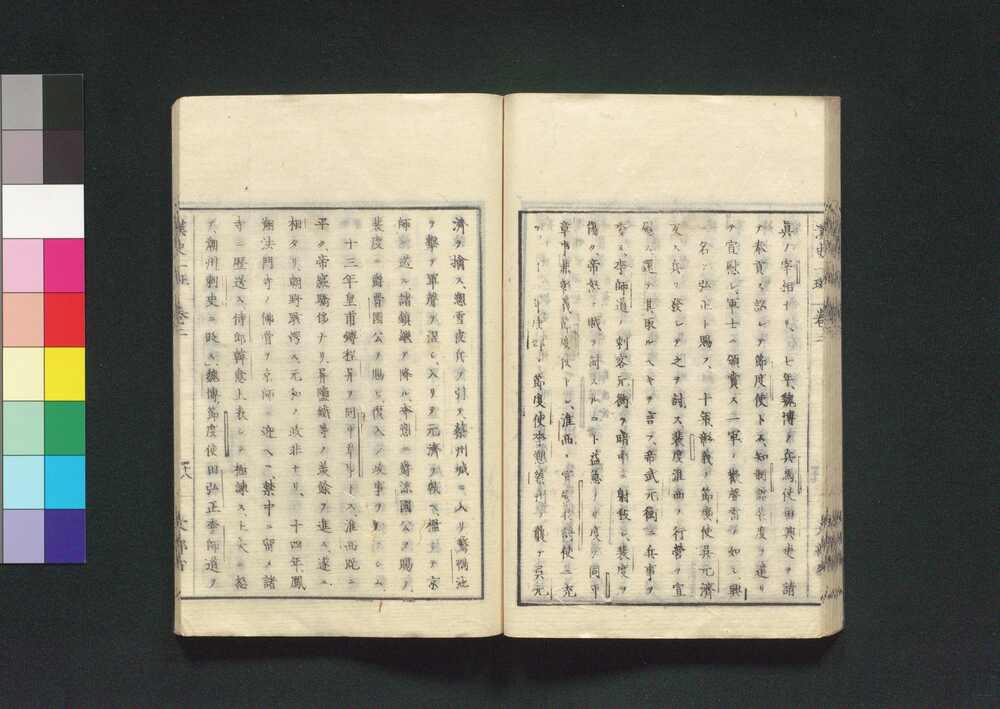 眞ノ宰相ナリ、七年魏博ノ兵馬使田興吏ヲ請
ヒ奉貢ス詔シテ節度使トス知制誥裴度ヲ遣リ
テ宣慰シ軍士ニ頒賞ス一軍ノ歡聲雷ノ如シ興
名ヲ弘正ト賜フ、十年彰義ノ節度使吳元濟
反ス兵ヲ發シテ之ヲ討ス裴度淮西ノ行營ヲ宣
慰ス還テ其取ルヘキヲ言フ帝武元衡ニ兵事ヲ
李師道ノ刺客元衡ヲ暗中ニ射殺シ裴度ヲ
傷ク帝怒テ賊ヲ討スルコト益急ナリ度ヲ同平
章事兼彰義節度使トシ淮西ノ宣慰招討使ニ充
節度使李愬蔡州ヲ襲テ吳元
濟ヲ擒ス愬雪夜兵ヲ引テ蔡州城ニ入リ鵞鴨池
ヲ擊テ軍聲ヲ混シ入リテ元濟ヲ執ヘ檻車ニテ京
師ニ送ル諸鎭繼テ降ル李愬ニ爵涼國公ヲ賜フ
裴度ニ爵晉國公ヲ賜ヒ復入リ政事ヲ知ラシム
十三年皇甫鎛程异ヲ同平章事トス淮西既ニ
平ク帝寖驕侈ナリ异鹽鐵等ノ羨餘ヲ進ム遂ニ
相タリ朝野駭愕ス元和ノ政非ナリ、十四年鳳
翔法門寺ノ佛骨ヲ京師ニ迎ヘ禁中ニ留メ諸
寺ニ歷送ス侍郎韓愈上表シテ極諫ス上大ニ怒
テ潮州刺史ニ貶ス、魏博節度使田弘正李師道ヲ